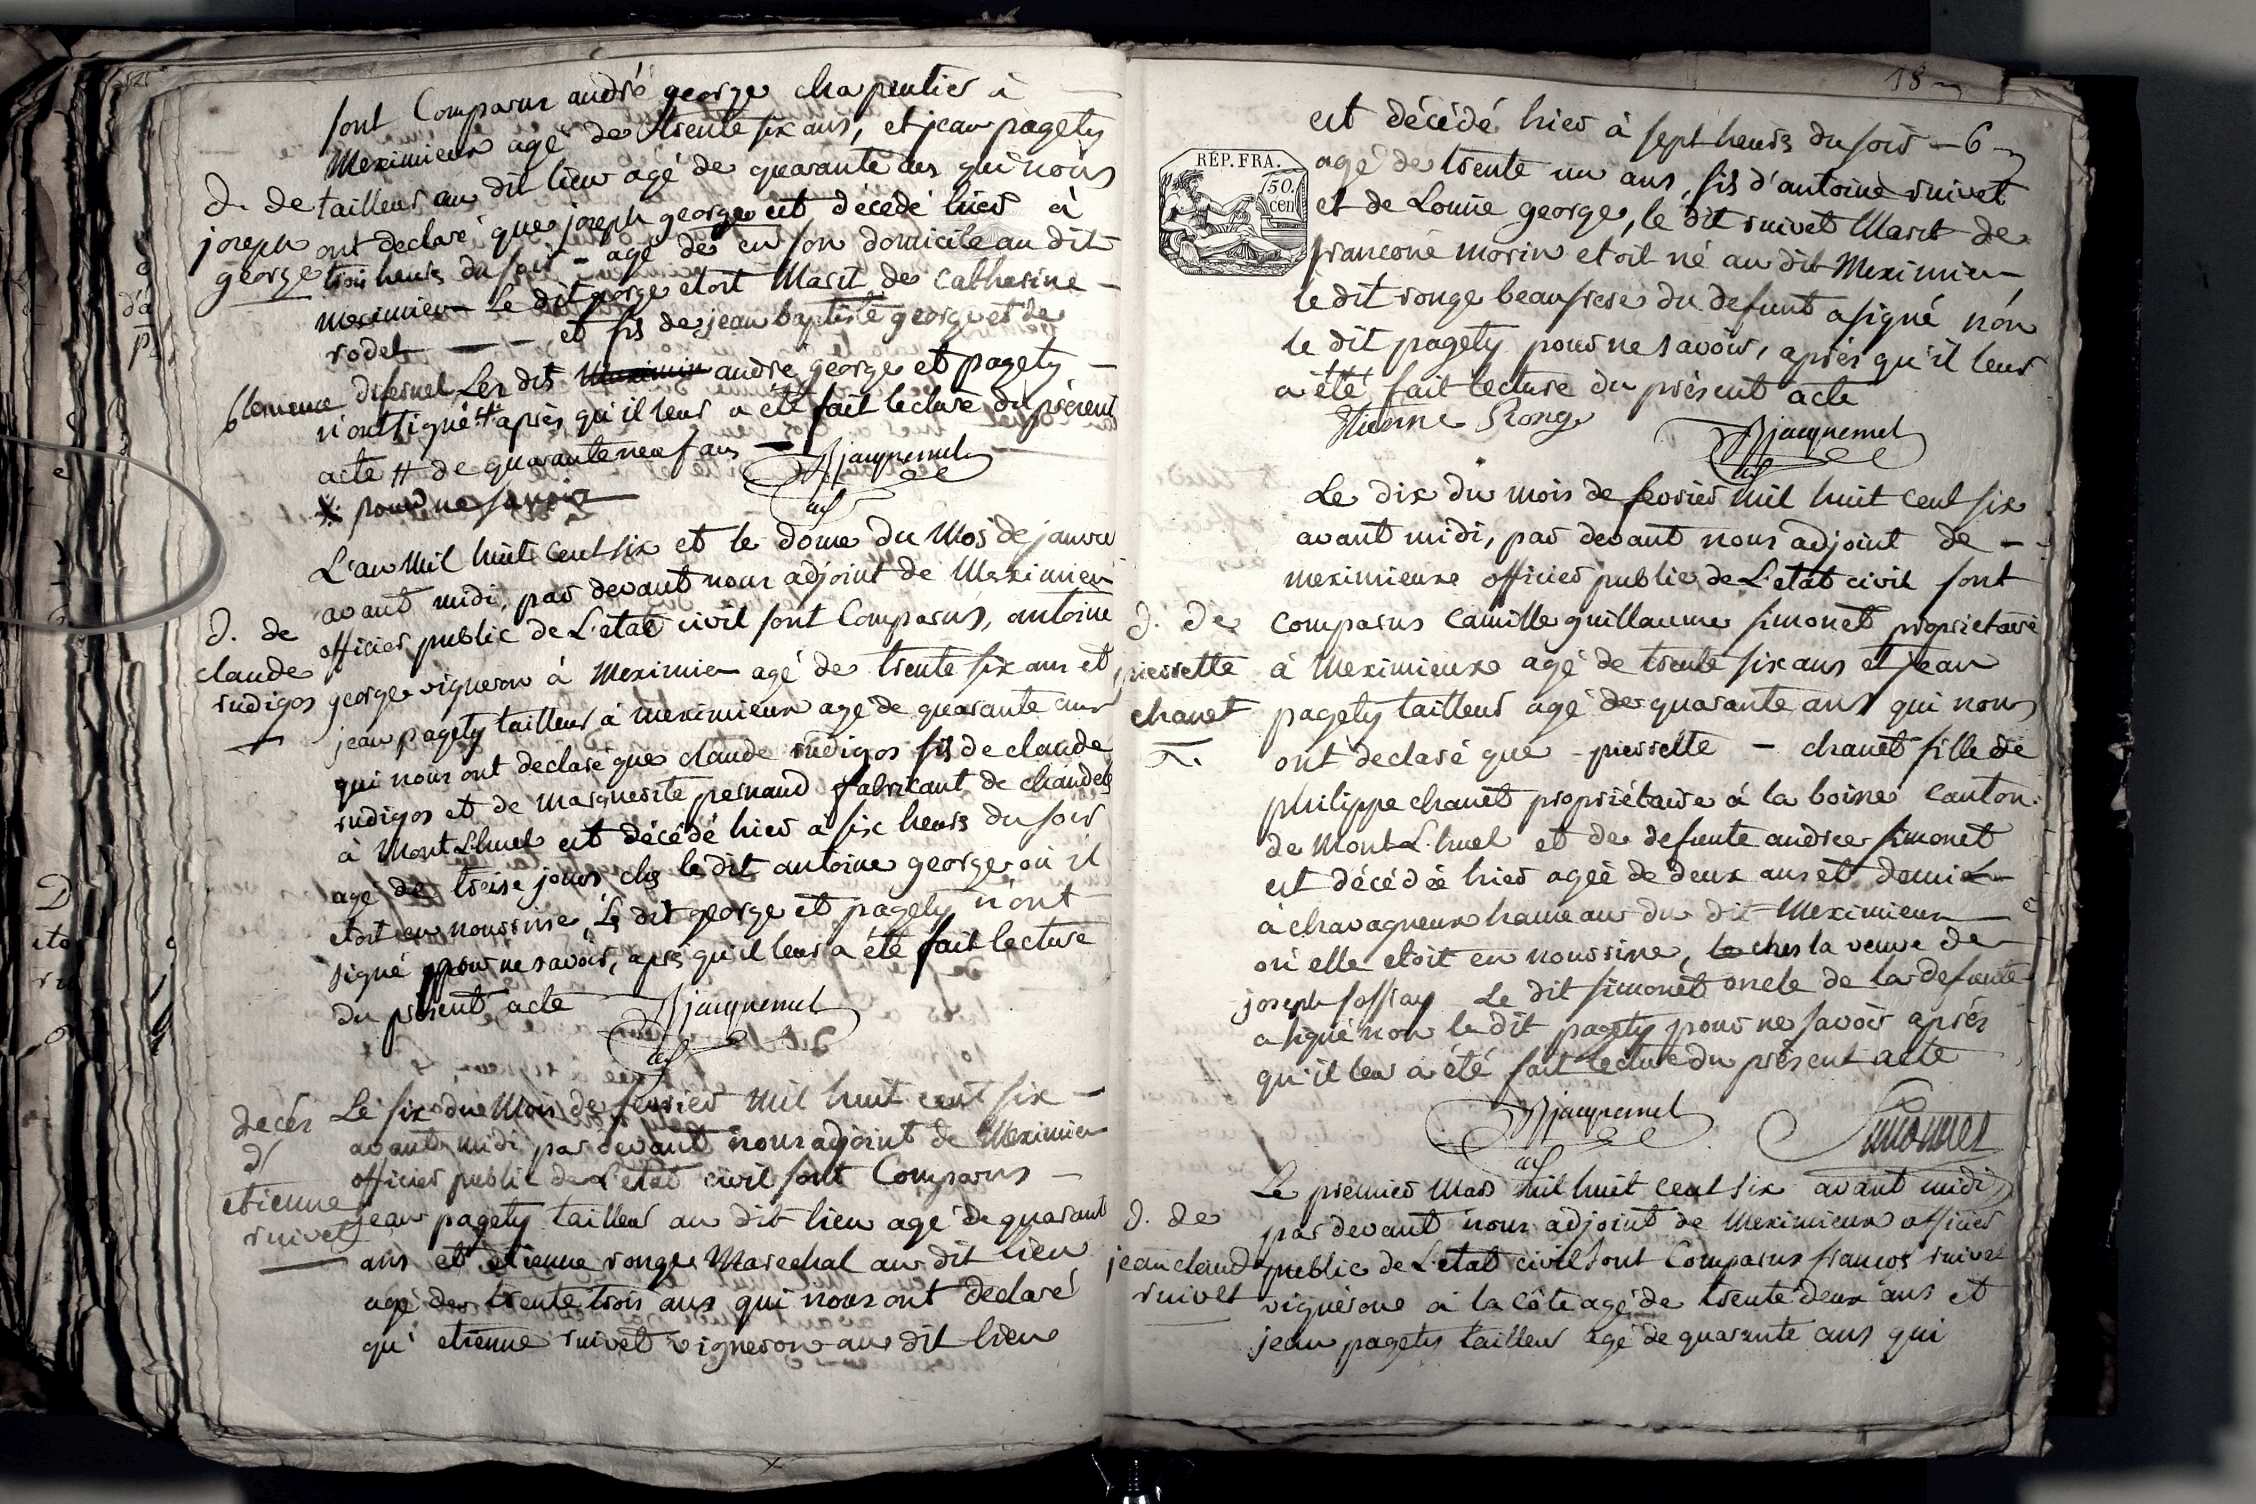 sont Comparus andré george charpentier à
Meximieux agé de trente six ans, et jean pagety
tailleur au dit lieu agé de quarante ans qui nous
D. de
joseph
george
ont declaré que joseph george est décédé hier à
trois heures du soir - agé de en son domicile au dit
meximieu Le dit george etoit Marit de Catherine
rodet et fils de jean baptiste george et de
Clemence Les dits andré george et pagety
n'ont signé après qu'il leur a été fait lecture du présent
acte # de quarante neuf ans Bjacquemet
pour ne savoir
adj
L'an Mil huit cent six et le dome du Mois de janvie
avant midi, par devant nous adjoint de Meximieu
D. de
claude
rudigos
officier public de L'etat civil sont Comparus, antoine
george vigneron à Meximieu agé de trente six ans et
jean pagety tailleur à meximieux agé de quarante ans
qui nous ont declaré que claude rudigos fils de claude
rudigos et de marguerite pernaud fabricant de chandel
à Mont L.huel est décédé hier à six heurs du soir
agé de treise jours ches le dit antoine george où il
etoit en nourrise, Ls dit george et pagety n'ont
signé pour ne savoir, après qu'il leur a été fait lecture
du présent acte Bjacquemet
adj
decés
d'
etienne
ruivet
Le six du Mois de fevrier mil huit cent six
avant midi par devant nous adjoint de Meximieu
officier public de L'etat civil sont Comparus
jean pagety tailleur au dit lieu agé de quarant
ans et etienne ronge Marechal au dit lieu
agé de trente trois ans qui nous ont declaré
qu' etienne ruivet vigneron au dit lieu
18
est décédé hier à sept heurs du soir - 6
RÉP. FRA.
50.
cen
agé de trente un ans, fils d'antoine ruivet
et de Louise george, le dit ruivet Marit de
francoise morin etoit né au dit Meximieu
le dit ronge beaufrere du defunt a signé non
le dit pagety pour ne savoir, après qu'il leur
a été fait lecture du présent acte
Etienne Rong
Bjacquemet
adj
Le dix du mois de fevrier mil huit cent six
avant midi, par devant nous adjoint de
meximieux officier public de L'etat civil sont
D. de
pierrette
chanet
comparus Camille guillaume simonet proprietaire
à Meximieux agé de trente six ans et jean
pagety tailleur agé de quarante ans qui nous
ont declaré que - pierrette - chanet fille de
philippe chanet propriétaire à la boisse canton
de Mont L.huel et de defunte andrée simonet
est décédée hier agée de deux ans et demie
à chavagneux hameau du dit Meximieux
où elle etoit en nourrine, ches la veuve de
joseph Le dit simonet oncle de la defunte
a signé non le dit pagety pour ne savoir après
qu'il leur a été fait lecture du présent acte
Bjacquemet Simonnet
adj
D. de
jean claud
ruivet
Le premier Mars mil huit cent six avant midi
par devant nous adjoint de Meximieux officier
public de L'etat civil sont Comparus francois ruivet
vigneron à la côte agé de trente deux ans et
jean pagety tailleur agé de quarante ans qui